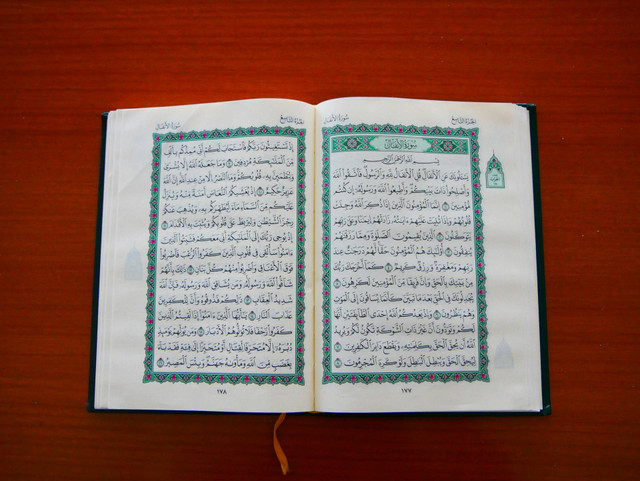 الجزء التاسع سورة الأنفال
سُورَةُ الأَنفَالِ
بِسْمِ ٱللَّهِ ٱلرَّحْمَٰنِ ٱلرَّحِيمِ
يَسْـَٔلُونَكَ عَنِ ٱلْأَنفَالِ قُلِ ٱلْأَنفَالُ لِلَّهِ وَٱلرَّسُولِ فَٱتَّقُوا۟ ٱللَّهَ
وَأَصْلِحُوا۟ ذَاتَ بَيْنِكُمْ وَأَطِيعُوا۟ ٱللَّهَ وَرَسُولَهُۥٓ إِن كُنتُم
مُّؤْمِنِينَ ١ إِنَّمَا ٱلْمُؤْمِنُونَ ٱلَّذِينَ إِذَا ذُكِرَ ٱللَّهُ وَجِلَتْ
قُلُوبُهُمْ وَإِذَا تُلِيَتْ عَلَيْهِمْ ءَايَٰتُهُۥ زَادَتْهُمْ إِيمَٰنًا وَعَلَىٰ رَبِّهِمْ
يَتَوَكَّلُونَ ٢ ٱلَّذِينَ يُقِيمُونَ ٱلصَّلَوٰةَ وَمِمَّا رَزَقْنَٰهُمْ
يُنفِقُونَ ٣ أُو۟لَٰٓئِكَ هُمُ ٱلْمُؤْمِنُونَ حَقًّا لَّهُمْ دَرَجَٰتٌ عِندَ
رَبِّهِمْ وَمَغْفِرَةٌ وَرِزْقٌ كَرِيمٌ ٤ كَمَآ أَخْرَجَكَ رَبُّكَ
مِنۢ بَيْتِكَ بِٱلْحَقِّ وَإِنَّ فَرِيقًا مِّنَ ٱلْمُؤْمِنِينَ لَكَٰرِهُونَ ٥
يُجَٰدِلُونَكَ فِى ٱلْحَقِّ بَعْدَمَا تَبَيَّنَ كَأَنَّمَا يُسَاقُونَ إِلَى ٱلْمَوْتِ
وَهُمْ يَنظُرُونَ ٦ وَإِذْ يَعِدُكُمُ ٱللَّهُ إِحْدَى ٱلطَّآئِفَتَيْنِ أَنَّهَا
لَكُمْ وَتَوَدُّونَ أَنَّ غَيْرَ ذَاتِ ٱلشَّوْكَةِ تَكُونُ لَكُمْ وَيُرِيدُ
ٱللَّهُ أَن يُحِقَّ ٱلْحَقَّ بِكَلِمَٰتِهِۦ وَيَقْطَعَ دَابِرَ ٱلْكَٰفِرِينَ ٧
لِيُحِقَّ ٱلْحَقَّ وَيُبْطِلَ ٱلْبَٰطِلَ وَلَوْ كَرِهَ ٱلْمُجْرِمُونَ ٨
١٧٧
الجزء التاسع سورة الأنفال
إِذْ تَسْتَغِيثُونَ رَبَّكُمْ فَٱسْتَجَابَ لَكُمْ أَنِّى مُمِدُّكُم بِأَلْفٍ
مِّنَ ٱلْمَلَٰٓئِكَةِ مُرْدِفِينَ ٩ وَمَا جَعَلَهُ ٱللَّهُ إِلَّا بُشْرَىٰ
وَلِتَطْمَئِنَّ بِهِۦ قُلُوبُكُمْ وَمَا ٱلنَّصْرُ إِلَّا مِنْ عِندِ ٱللَّهِ إِنَّ ٱللَّهَ
عَزِيزٌ حَكِيمٌ ١٠ إِذْ يُغَشِّيكُمُ ٱلنُّعَاسَ أَمَنَةً مِّنْهُ وَيُنَزِّلُ
عَلَيْكُم مِّنَ ٱلسَّمَآءِ مَآءً لِّيُطَهِّرَكُم بِهِۦ وَيُذْهِبَ عَنكُمْ
رِجْزَ ٱلشَّيْطَٰنِ وَلِيَرْبِطَ عَلَىٰ قُلُوبِكُمْ وَيُثَبِّتَ بِهِ ٱلْأَقْدَامَ ١١
إِذْ يُوحِى رَبُّكَ إِلَى ٱلْمَلَٰٓئِكَةِ أَنِّى مَعَكُمْ فَثَبِّتُوا۟ ٱلَّذِينَ
ءَامَنُوا۟ سَأُلْقِى فِى قُلُوبِ ٱلَّذِينَ كَفَرُوا۟ ٱلرُّعْبَ فَٱضْرِبُوا۟
فَوْقَ ٱلْأَعْنَاقِ وَٱضْرِبُوا۟ مِنْهُمْ كُلَّ بَنَانٍ ١٢ ذَٰلِكَ بِأَنَّهُمْ
شَآقُّوا۟ ٱللَّهَ وَرَسُولَهُۥ وَمَن يُشَاقِقِ ٱللَّهَ وَرَسُولَهُۥ فَإِنَّ ٱللَّهَ
شَدِيدُ ٱلْعِقَابِ ١٣ ذَٰلِكُمْ فَذُوقُوهُ وَأَنَّ لِلْكَٰفِرِينَ
عَذَابَ ٱلنَّارِ ١٤ يَٰٓأَيُّهَا ٱلَّذِينَ ءَامَنُوٓا۟ إِذَا لَقِيتُمُ ٱلَّذِينَ
كَفَرُوا۟ زَحْفًا فَلَا تُوَلُّوهُمُ ٱلْأَدْبَارَ ١٥ وَمَن يُوَلِّهِمْ يَوْمَئِذٍ
دُبُرَهُۥٓ إِلَّا مُتَحَرِّفًا لِّقِتَالٍ أَوْ مُتَحَيِّزًا إِلَىٰ فِئَةٍ فَقَدْ بَآءَ
بِغَضَبٍ مِّنَ ٱللَّهِ وَمَأْوَىٰهُ جَهَنَّمُ وَبِئْسَ ٱلْمَصِيرُ ١٦
١٧٨